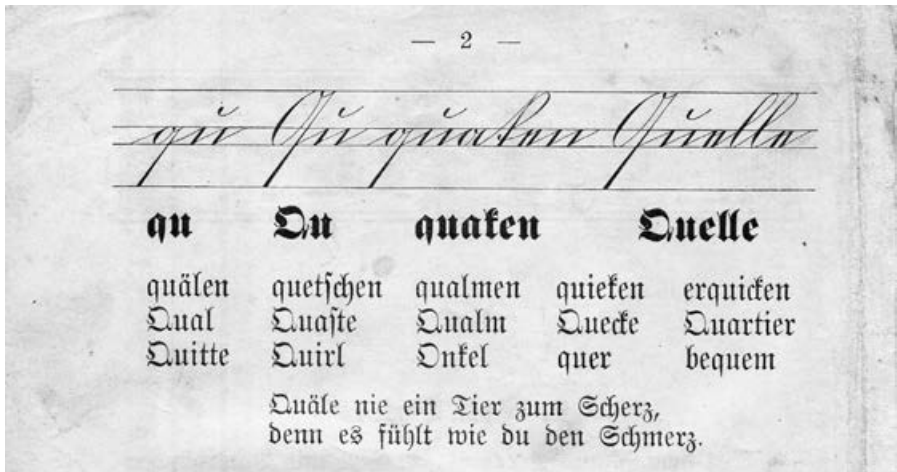 — 2 —
qu Qu quaken Quelle
qu Qu quaken Quelle
quälen quetschen qualmen quieken erquicken
Qual Quaste Qualm Quecke Quartier
Quitte Quirl Onkel quer bequem
Quäle nie ein Tier zum Scherz,
denn es fühlt wie du den Schmerz.